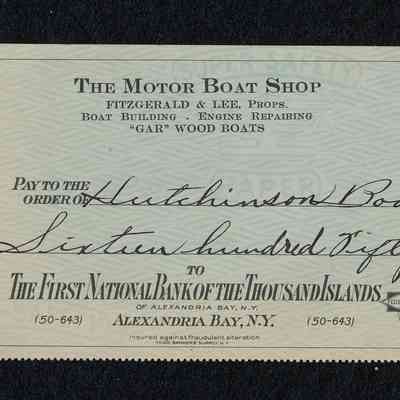 THE MOTOR BOAT SHOP
FITZGERALD & LEE, PROPS.
BOAT BUILDING - ENGINE REPAIRING
"GAR" WOOD BOATS
PAY TO THE
ORDER OF Hutchinson Boa
Sixteen hundred Fifty
TO
THE FIRST NATIONAL BANK OF THE THOUSAND ISLANDS
OF ALEXANDRIA BAY, N.Y.
(50-643) ALEXANDRIA BAY, N.Y. (50-643)
Insured against fraudulent alteration